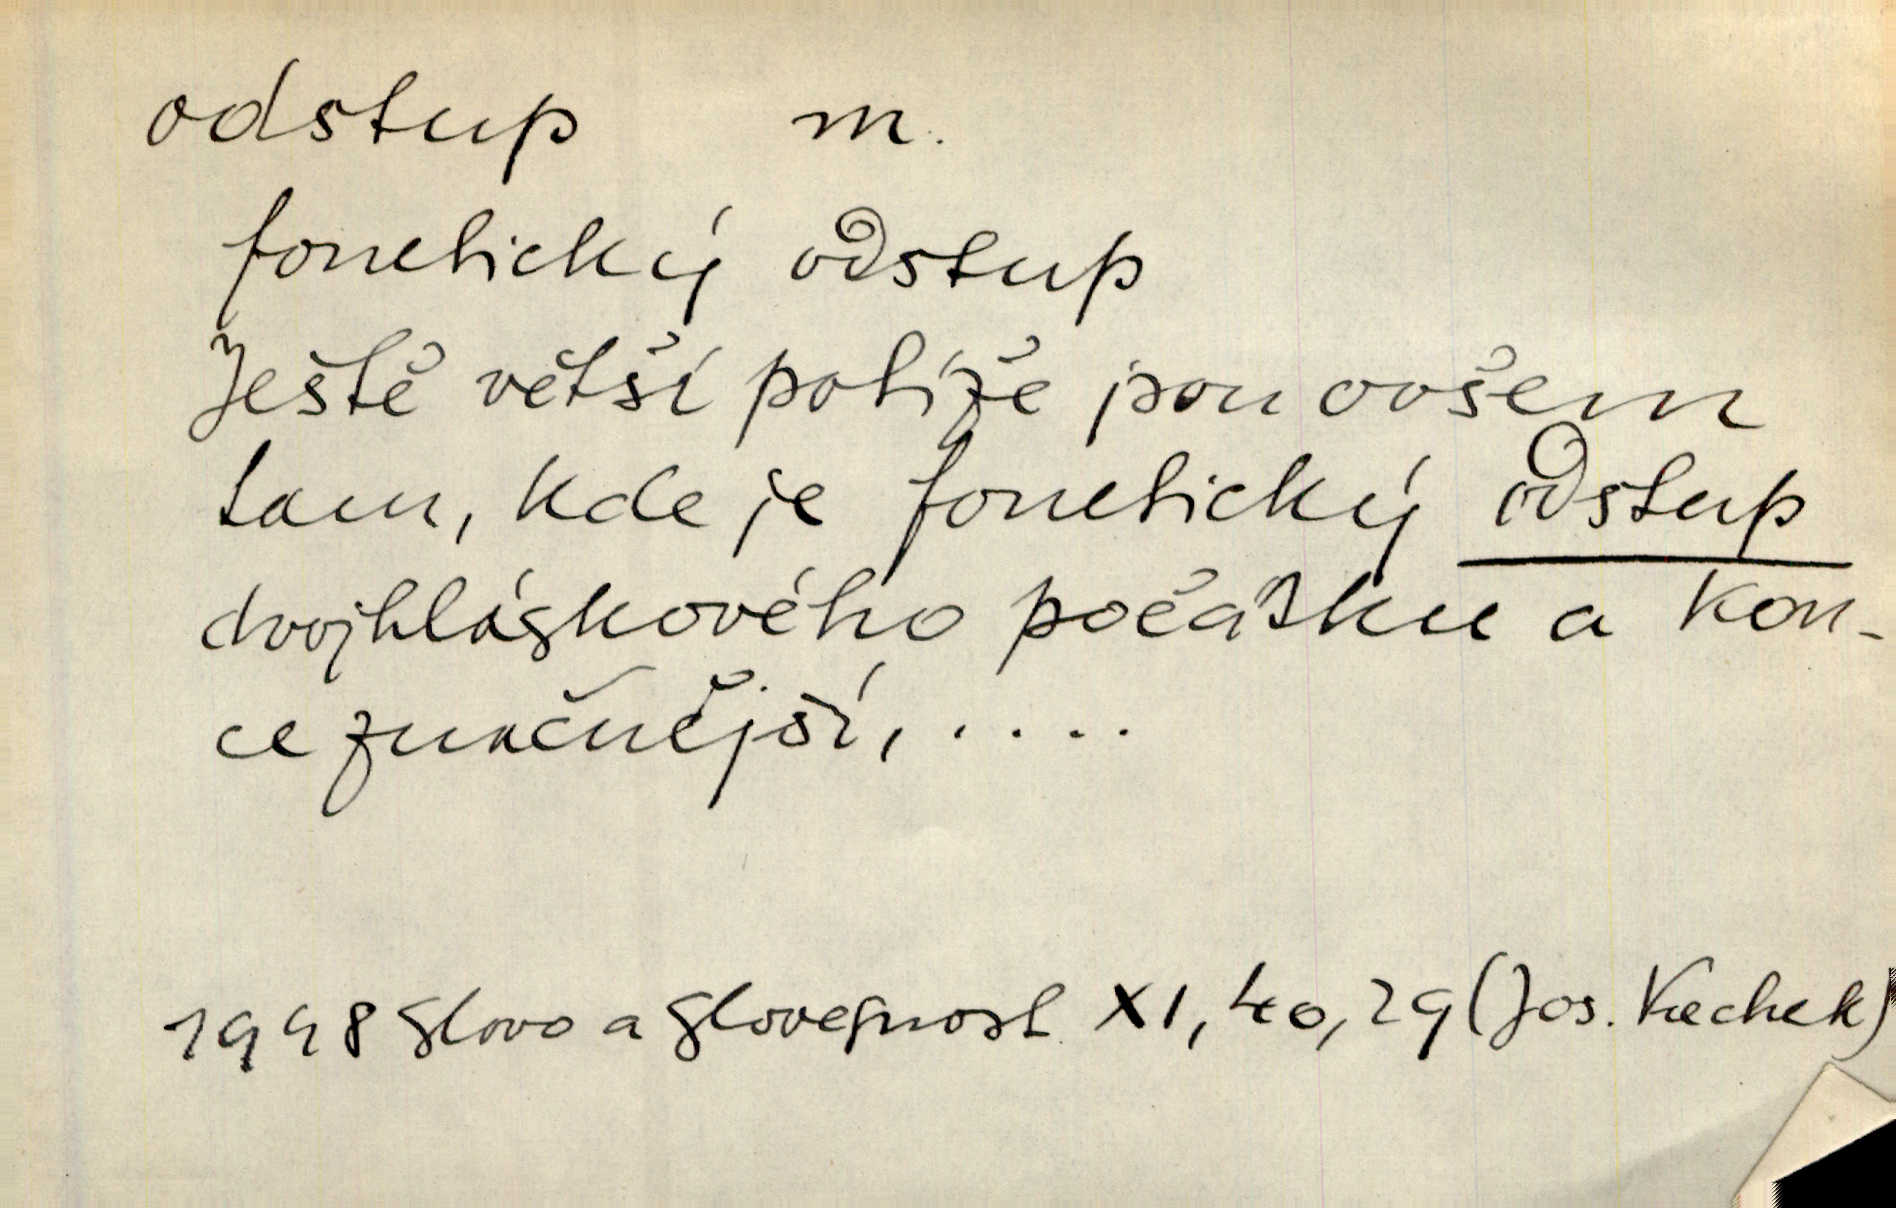 odstup m.
fonetický odstup
Ještě větší potíže jsou ovšem
tam, kde je fonetický odstup
dvojhláskového počátku a kon-
ce značnější, ....
1948 Slovo a slovesnost XI, 40, 29 (Jos. Vachek)